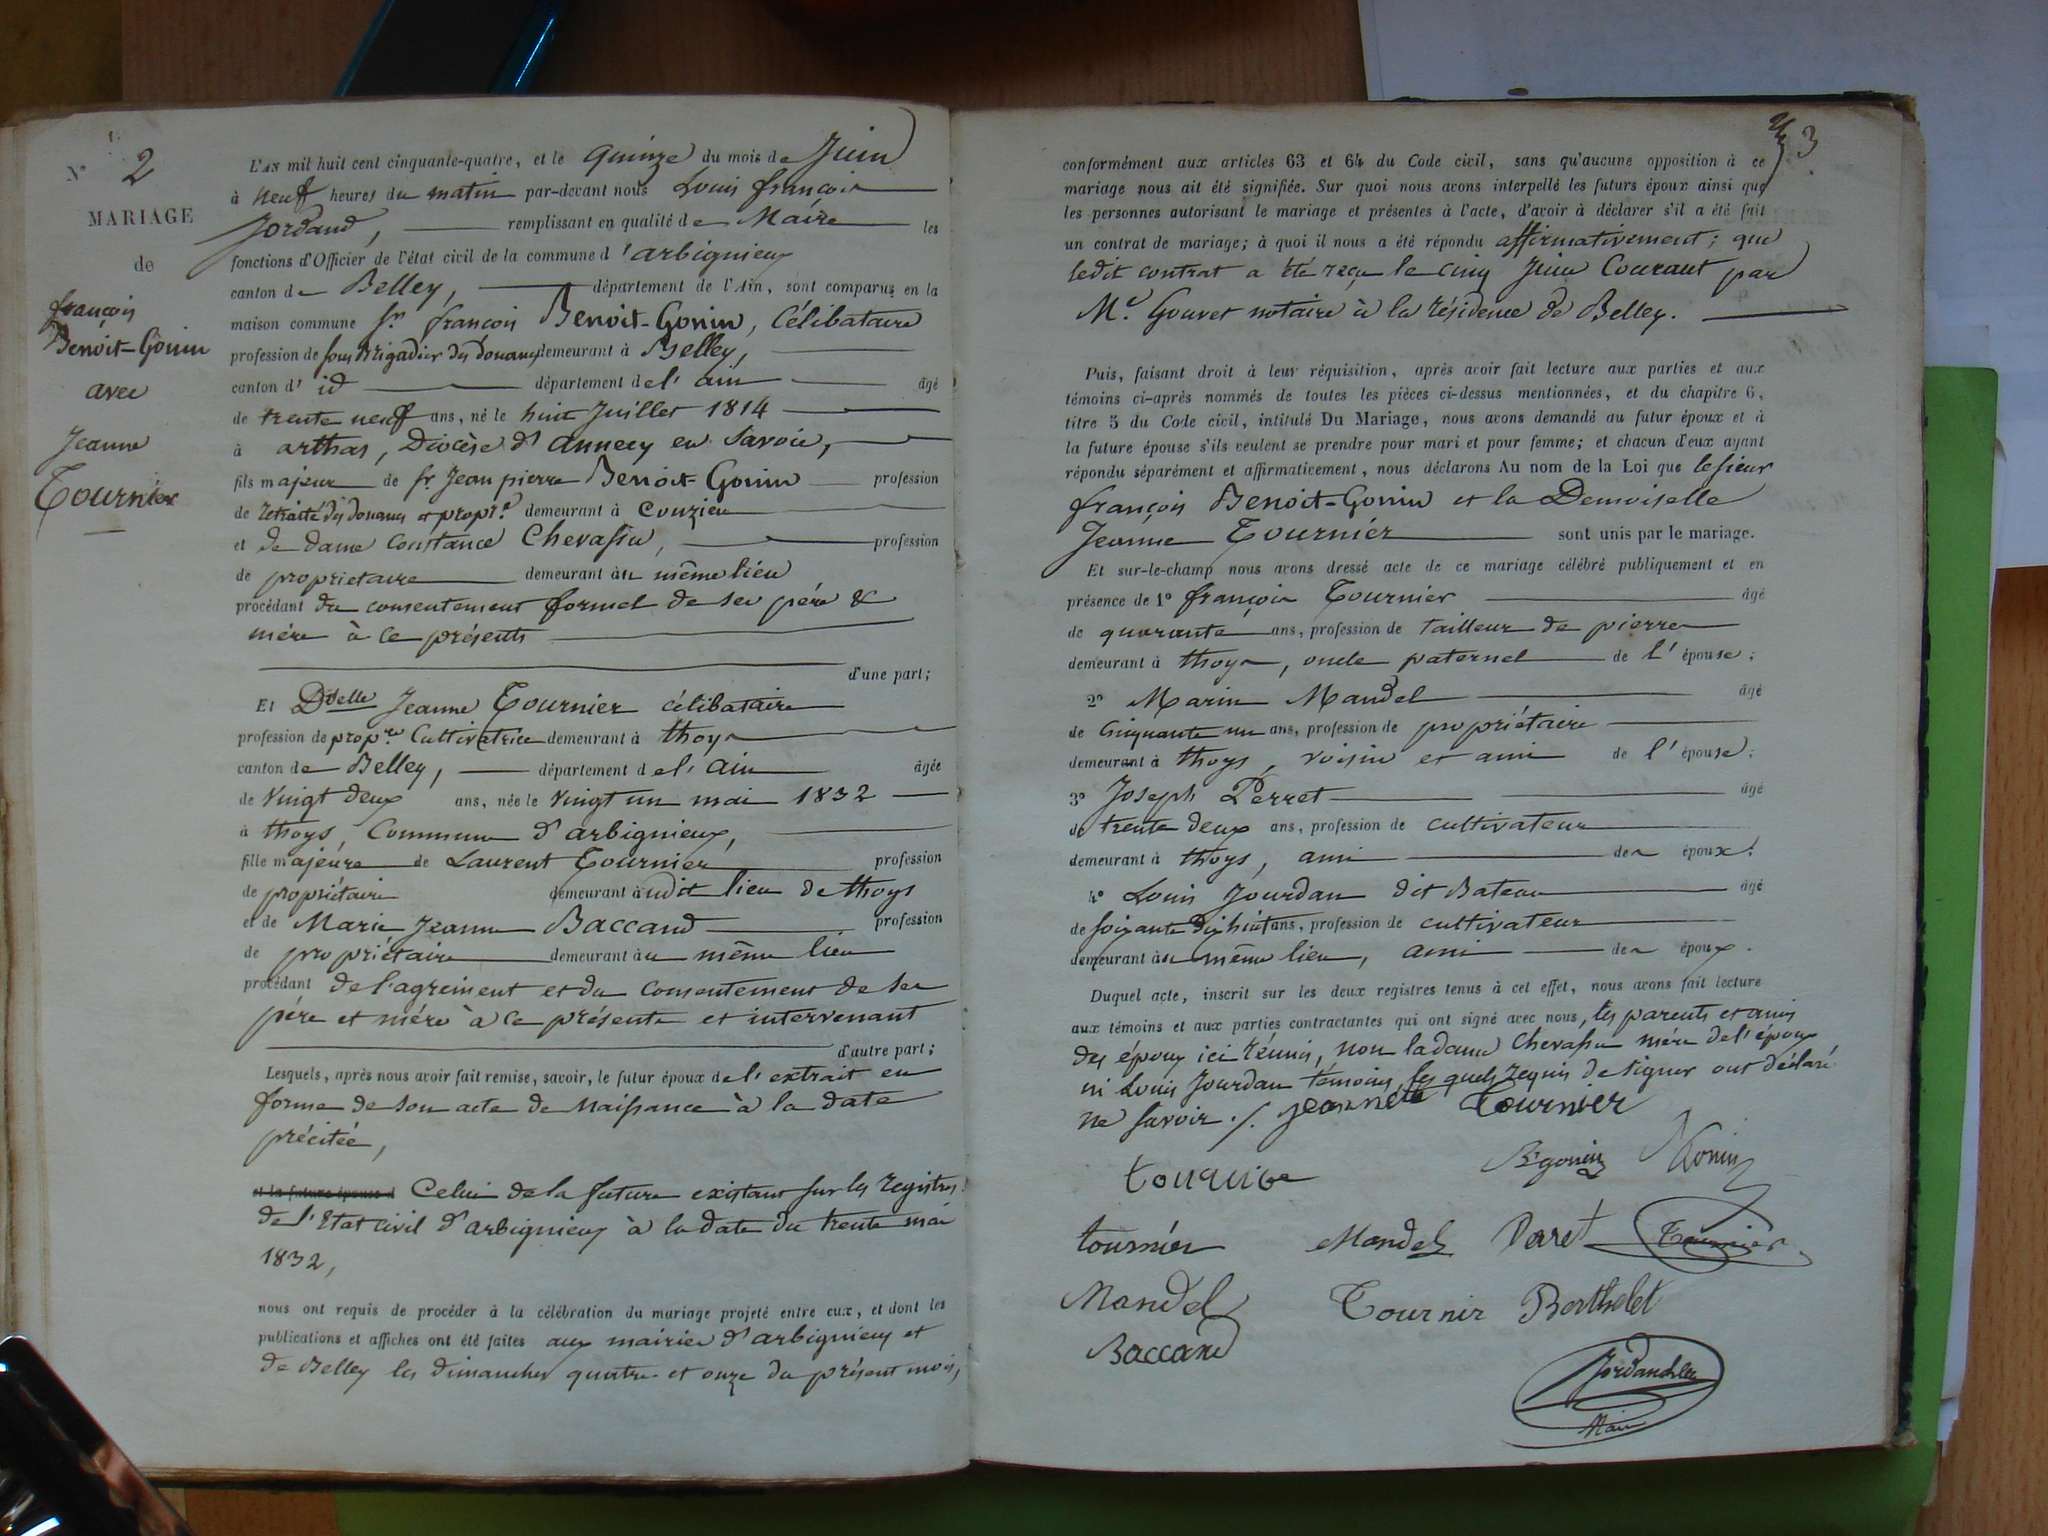 N° 2
MARIAGE
de
françois
Benoit-Gonin
avec
Jeanne
Tournier
L'AN mil huit cent cinquante-quatre, et le quinze du mois de Juin
à neuf heures du matin par-devant nous Louis françois
Jordand, remplissant en qualité de Maire les
fonctions d'Officier de l'état civil de la commune d'arbignieux
canton de Belley, département de l'Ain, sont comparus en la
maison commune Sr. françois Benoit-Gonin, Célibataire
profession de sous Brigadier des douanes demeurant à Belley,
canton d' id département de l' ain âgé
de trente neuf ans, né le huit Juillet 1814
à arthas, Diocèse d'annecy en Savoie,
fils majeur de sr. Jean pierre Benoit-Gonin profession
de retraité des douanes et propre. demeurant à Couzieu
et de dame Constance Chevassu, profession
de proprietaire demeurant au même lieu
procédant du consentement formel de ses père &
mère à ce présents
d'une part;
Et Dlselle Jeanne Tournier célibataire
profession de propre Cultivatrice demeurant à thoys
canton de Belley, département de l' ain âgée
de vingt deux ans, née le vingt un mai 1832
à thoys, Commune d'arbignieux,
fille majeure de Laurent Tournier profession
de propriétaire demeurant audit lieu de thoys
et de Marie Jeanne Baccand profession
de propriétaire demeurant au même lieu
procédant de l'agrément et du consentement de ses
père et mère à ce présents et intervenant
d'autre part;
Lesquels, après nous avoir fait remise, savoir, le futur époux de l'extrait en
forme de son acte de Naissance à la date
précitée,
et la future épouse d Celui de la future existant sur les registres
de l'Etat civil d'arbignieux à la date du trente mai
1832,
nous ont requis de procéder à la célébration du mariage projeté entre eux, et dont les
publications et affiches ont été faites aux mairies d'arbignieux et
de Belley les dimanches quatre et onze du présent mois,
3
conformément aux articles 63 et 64 du Code civil, sans qu'aucune opposition à ce
mariage nous ait été signifiée. Sur quoi nous avons interpellé les futurs époux ainsi que
les personnes autorisant le mariage et présentes à l'acte, d'avoir à déclarer s'il a été fait
un contrat de mariage; à quoi il nous a été répondu affirmativement; que
ledit contrat a été reçu le cinq Juin Courant par
Me. Gouvet notaire à la résidence de Belley.
Puis, faisant droit à leur réquisition, après avoir fait lecture aux parties et aux
témoins ci-après nommés de toutes les pièces ci-dessus mentionnées, et du chapitre 6,
titre 5 du Code civil, intitulé Du Mariage, nous avons demandé au futur époux et à
la future épouse s'ils veulent se prendre pour mari et pour femme; et chacun d'eux ayant
répondu séparément et affirmativement, nous déclarons Au nom de la Loi que le sieur
françois Benoit-Gonin et la Demoiselle
Jeanne Tournier sont unis par le mariage.
Et sur-le-champ nous avons dressé acte de ce mariage célébré publiquement et en
présence de 1° françois Tournier âgé
de quarante ans, profession de tailleur de pierre
demeurant à thoys, oncle paternel de l' épouse;
2° Marin Mandel âgé
de Cinquante un ans, profession de propriétaire
demeurant à thoys, voisin et ami de l' épouse;
3° Joseph Perret âgé
de trente deux ans, profession de cultivateur
demeurant à thoys, ami de l' époux;
4° Louis Jourdan dit Bateau âgé
de soixante dix huit ans, profession de cultivateur
demeurant au même lieu, ami de l' époux.
Duquel acte, inscrit sur les deux registres tenus à cet effet, nous avons fait lecture
aux témoins et aux parties contractantes qui ont signé avec nous, les parents et amis
des époux ici réunis, non la dame Chevassu mère de l'époux
ni Louis Jourdan témoins, les quels requis de signer ont déclaré
ne savoir ./. jeannette Tournier
Bt gonin Gonin
tournier Mandel Perret Tournier
Mandel Tournir Berthelet
Baccand
Jordand
Maire